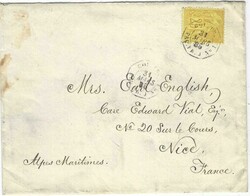 Mrs. Earl English,
Care Edward Vial, Esq.
No 20 Sur le Cours,
Nice,
Alpes Maritimes. France.